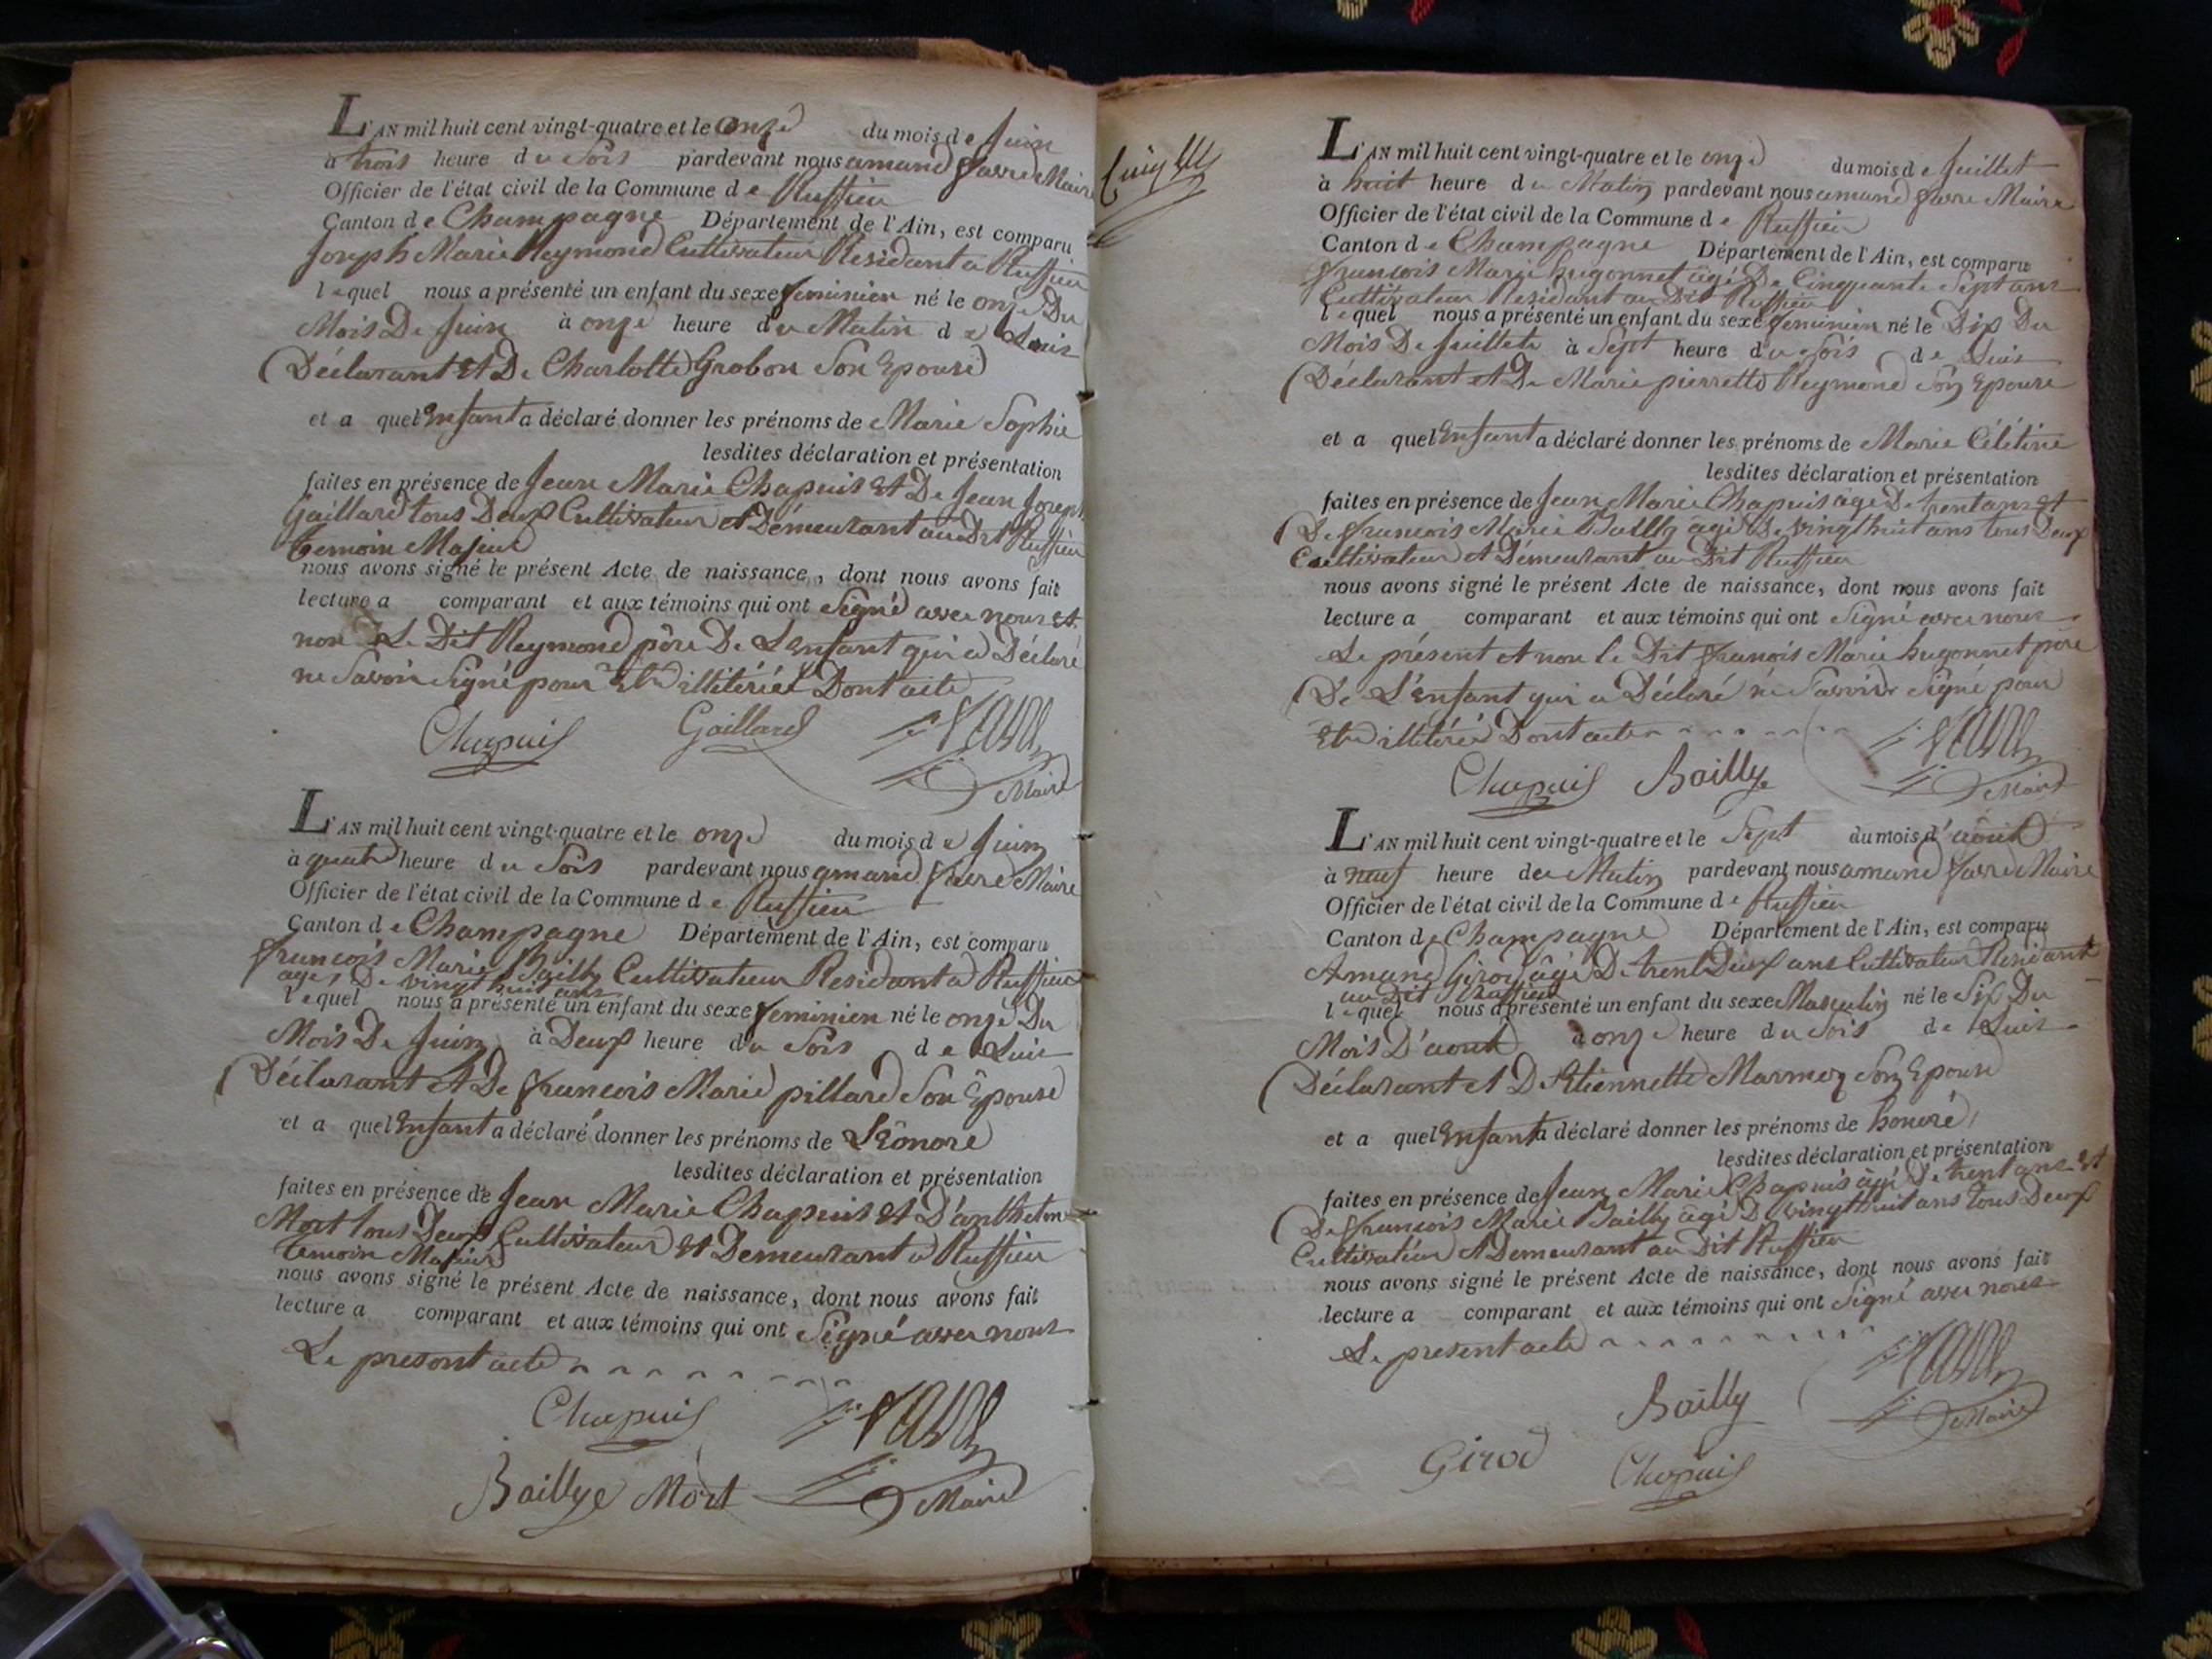 L'AN mil huit cent vingt-quatre et le onze du mois de Juin
à trois heure du Soir pardevant nous amand favre Maire
Officier de l'état civil de la Commune de Ruffieu
Canton de Champagne Département de l'Ain, est comparu
Joseph Marie Reymond Cultivateur Residant a Ruffieu
lequel nous a présenté un enfant du sexe feminien né le onze Du
Mois De Juin à onze heure du Matin de Luis
Déclarant Et De Charlotte Grobon Son Epouse
et a quel Enfant a déclaré donner les prénoms de Marie Sophie
lesdites déclaration et présentation
faites en présence de Jean Marie Chapuis Et De Jean Joseph
Gaillard tous Deux Cultivateur et Demeurant au Dit Ruffieu
temoin Majeur
nous avons signé le présent Acte de naissance, dont nous avons fait
lecture a comparant et aux témoins qui ont Signé avec nous et
non Le Dit Reymond père De L'enfant qui a Déclaré
ne Savoir Signé pour Etre illitéré Dont acte
Chapuis Gaillard favre
Maire
L'AN mil huit cent vingt-quatre et le onze du mois de Juin
à quatre heure du Soir pardevant nous amand favre Maire
Officier de l'état civil de la Commune de Ruffieu
Canton de Champagne Département de l'Ain, est comparu
francois Marie Bailly Cultivateur Residant a Ruffieu
age De vingt huit ans
lequel nous a présenté un enfant du sexe feminien né le onze Du
Mois De Juin à Deux heure du Soir de Luis
Déclarant et De francois Marie pillard Son Epouse
et a quel Enfant a déclaré donner les prénoms de Léonore
lesdites déclaration et présentation
faites en présence de Jean Marie Chapuis et D'anthelme
Mort tous Deux Cultivateur et Demeurant a Ruffieu
temoin Majeur
nous avons signé le présent Acte de naissance, dont nous avons fait
lecture a comparant et aux témoins qui ont Signé avec nous
Le present acte
Chapuis favre
Baillye Mort Maire
L'AN mil huit cent vingt-quatre et le onze du mois de Juillet
à huit heure du Matin pardevant nous amand favre Maire
Officier de l'état civil de la Commune de Ruffieu
Canton de Champagne Département de l'Ain, est comparu
francois Marie hugonnet âgé De Cinquante Sept ans
Cultivateur Residant au Dit Ruffieu
lequel nous a présenté un enfant du sexe feminien né le Dix Du
Mois De Juillete à Sept heure du Soir de Luis
Déclarant et De Marie pierrette Reymond Son Epouse
et a quel Enfant a déclaré donner les prénoms de Marie Céléstine
lesdites déclaration et présentation
faites en présence de Jean Marie Chapuis age De trent ans et
De francois Marie Bailly agé De vingt huit ans tous Deux
Cultivateur et Demeurant au Dit Ruffieu
nous avons signé le présent Acte de naissance, dont nous avons fait
lecture a comparant et aux témoins qui ont Signé avec nous
Le présent et non le Dit franois Marie hugonnet père
De L'enfant qui a Déclaré ne Savoir Signé pour
Etre illitéré Dont acte
Chapuis Baillye favre
Maire
L'AN mil huit cent vingt-quatre et le Sept du mois d'août
à neuf heure du Matin pardevant nous amand favre Maire
Officier de l'état civil de la Commune de Ruffieu
Canton de Champagne Département de l'Ain, est comparu
Amand Girod âgé De trent Deux ans Cultivateur Residant
au Dit Ruffieu
lequel nous a présenté un enfant du sexe Masculin né le Six Du
Mois D'aout à onze heure du Soir de Luis
Déclarant et D'Etiennette Marmoz Son Epouse
et a quel Enfant a déclaré donner les prénoms de honoré
lesdites déclaration et présentation
faites en présence de Jean Marie Chapuis âgé De trent ans et
De francois Marie Bailly âgé De vingt huit ans tous Deux
Cultivateur et Demeurant au Dit Ruffieu
nous avons signé le présent Acte de naissance, dont nous avons fait
lecture a comparant et aux témoins qui ont Signé avec nous
Le present acte
Bailly favre
Maire
Girod Chapuis